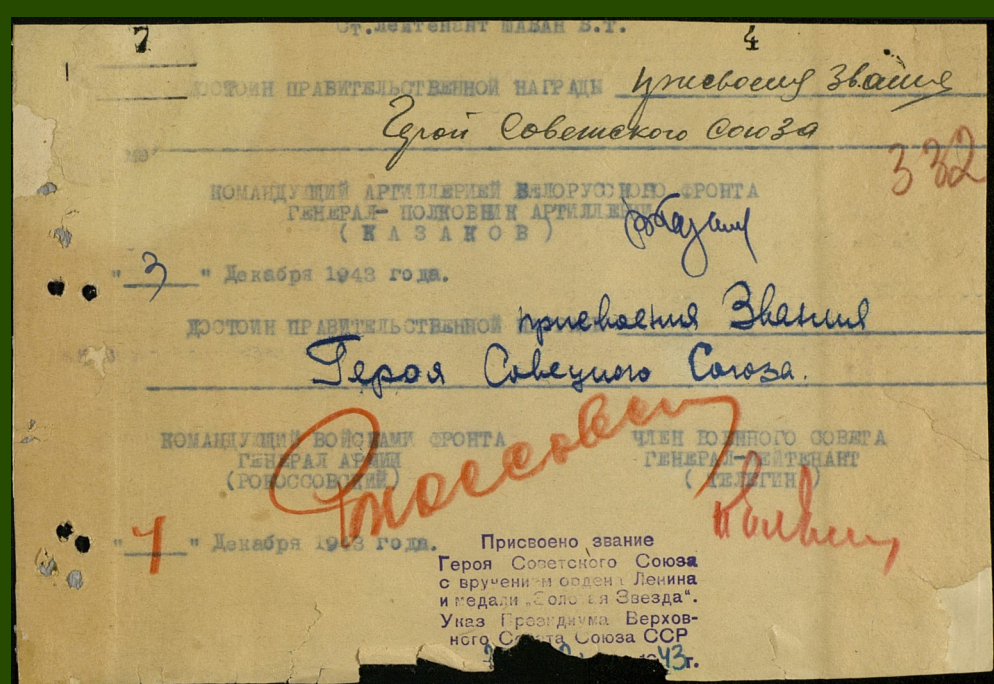 7 4
Ст.лейтенант ШАБАН В.Т.
ДОСТОИН ПРАВИТЕЛЬСТВЕННОЙ НАГРАДЫ присвоения звания
Герой Советского Союза
332
КОМАНДУЩИЙ АРТИЛЛЕРИЕЙ БЕЛОРУССКОГО ФРОНТА
ГЕНЕРАЛ- ПОЛКОВНИК АРТИЛЛЕРИИ
(КАЗАКОВ)
"3" Декабря 1943 года.
ДОСТОИН ПРАВИТЕЛЬСТВЕННОЙ присвоения Звания
Героя Совецкого Союза.
КОМАНДУЩИЙ ВОЙСКАМИ ФРОНТА ЧЛЕН ВОЕННОГО СОВЕТА
ГЕНЕРАЛ АРМИИ ГЕНЕРАЛ-ЛЕЙТЕНАНТ
(РОКОССОВСКИЙ) (ТЕЛЕГИН)
" " Декабря 1943 года.
Присвоено звание
Героя Советского Союза
с вручением ордена Ленина
и медали „Золотая Звезда".
Указ Президиума Верхов-
ного Совета Союза ССР
43г.